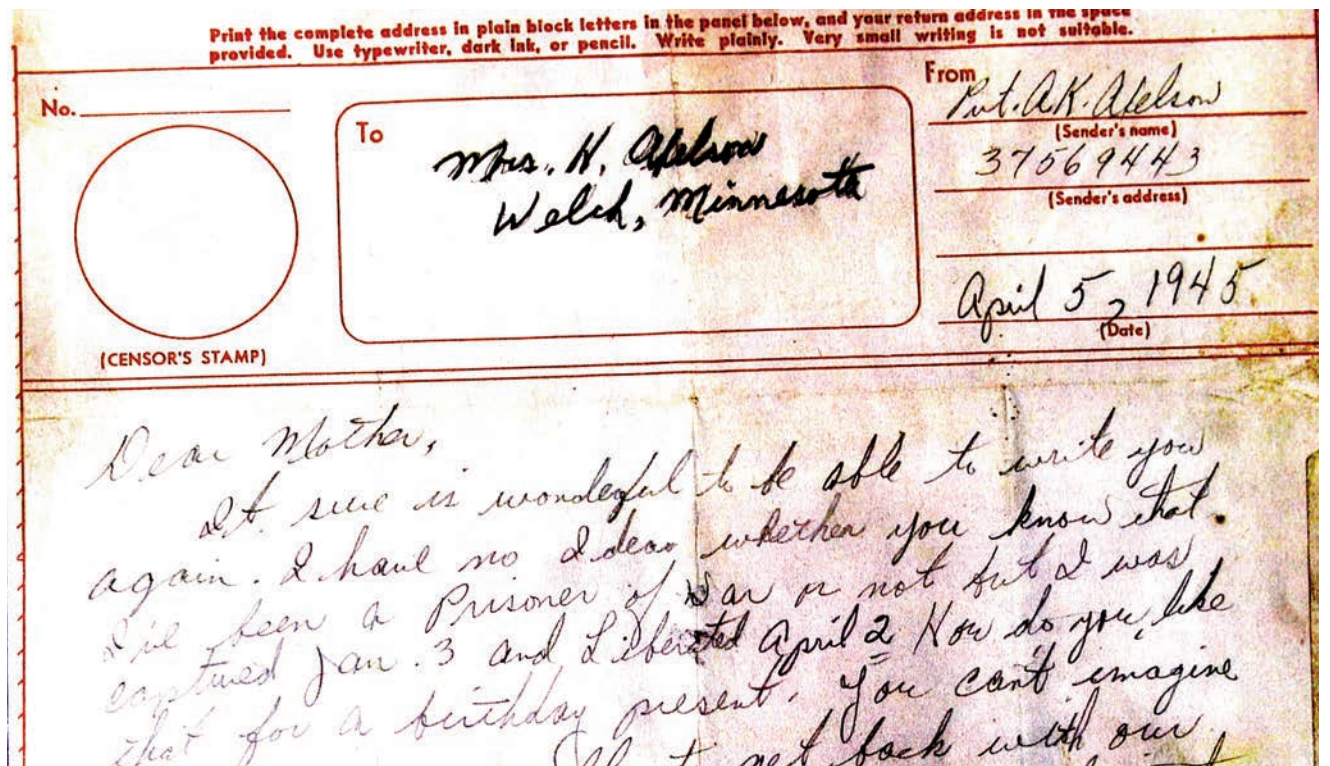 Print the complete address in plain block letters in the panel below, and your return address in the space
provided. Use typewriter, dark ink, or pencil. Write plainly. Very small writing is not suitable.
No.
To
Mrs. H. Axelson
Welch, Minnesota
From
Pvt. A.K. Axelson
(Sender's name)
37569443
(Sender's address)
April 5, 1945
(Date)
(CENSOR'S STAMP)
Dear Mother,
It sure is wonderful to be able to write you
again. I have no Idea whether you know that
I've been a Prisoner of War or not but I was
captured Jan. 3 and Liberated April 2 How do you like
that for a birthday present. You can't imagine
get back with our